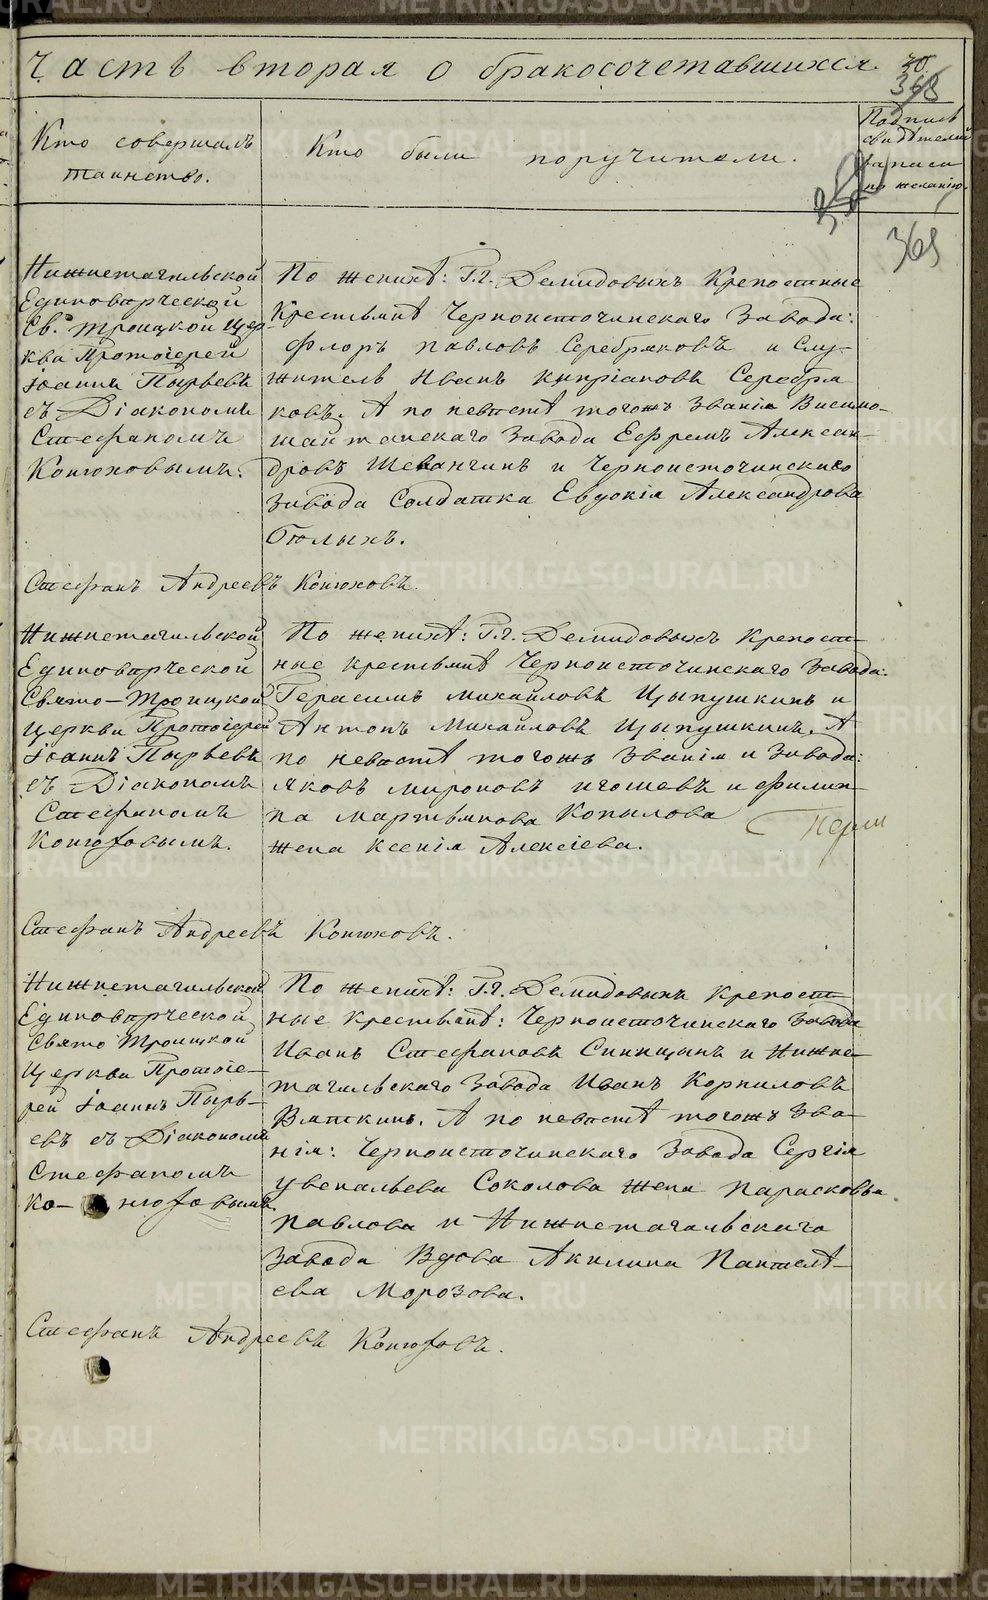 Часть вторая о бракосочетавшихся.
30.
368
Кто совершалъ
таинство.
Кто были поручители.
Подпись
свидѣтелей
записи
по желанію.
369
Нижнетагильской
Единовѣрческой
Св. Троицкой Цер-
кви Протоіерей
Іоаннъ Пырьевъ
съ Діакономъ
Стефаномъ
Конюховымъ.
По женихѣ: Г.г. Демидовыхъ Крепостные
Крестьянѣ Черноисточинскаго Завода:
Флоръ Павловъ Серебряковъ и Слу-
житель Иванъ Кипріановъ Серебря
ковъ. А по невѣстѣ тогожъ Званія Висимо-
шайтанскаго Завода Ефремъ Алексан-
дровъ Шевангинъ и Черноисточинскаго
Завода Солдатка Евдокія Александрова
Голыхъ.
Стефанъ Андреевъ Конюховъ.
Нижнетагильской
Единовѣрческой
Свято-Троицкой
Церкви Протоіерей
Іоаннъ Пырьевъ
съ Діакономъ
Стефаномъ
Конюховымъ.
По женихѣ: Г.г. Демидовыхъ Крепост-
ные крестьянѣ Черноисточинскаго Завода:
Герасимъ Михайловъ Цыпушкинъ и
Антонъ Михайловъ Цыпушкинъ. А
по невѣстѣ тогожъ Званія и Завода:
Яковъ Мироновъ Игошевъ и Филип-
па Мартьянова Копылова
жена Ксенія Алексіева.
Перм
Стефанъ Андреевъ Конюховъ.
Нижнетагильской
Единовѣрческой
Свято Троицкой
Церкви Протоіе-
рей Іоаннъ Пырь-
евъ съ Діакономъ
Стефаномъ
Ко- нюховымъ.
По женихѣ: Г.г. Демидовыхъ Крепост-
ные Крестьянѣ: Черноисточинскаго Завода
Иванъ Стефановъ Синицынъ и Нижне-
тагильскаго Завода Иванъ Корниловъ
Вяткинъ. А по невѣстѣ тогожъ Зва-
нія: Черноисточинскаго Завода Сергія
Увенальева Соколова жена Парасковья
Павлова и Нижнетагильскаго
Завода Вдова Акилина Пантелѣ-
ева Морозова.
Стефанъ Андреевъ Конюховъ.
METRIKI.GASO-URAL.RU